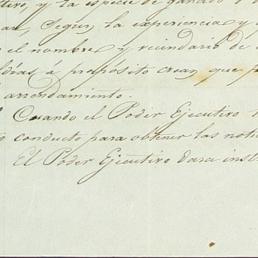 tivo, y la especie de ganado
Según la experiencia y
el nombre y vecindario de
á propósito crean, que
arrendamiento.
Cuando el Poder Ejecutivo
conducto para obtener las noti
El Poder Ejecutivo dara inst